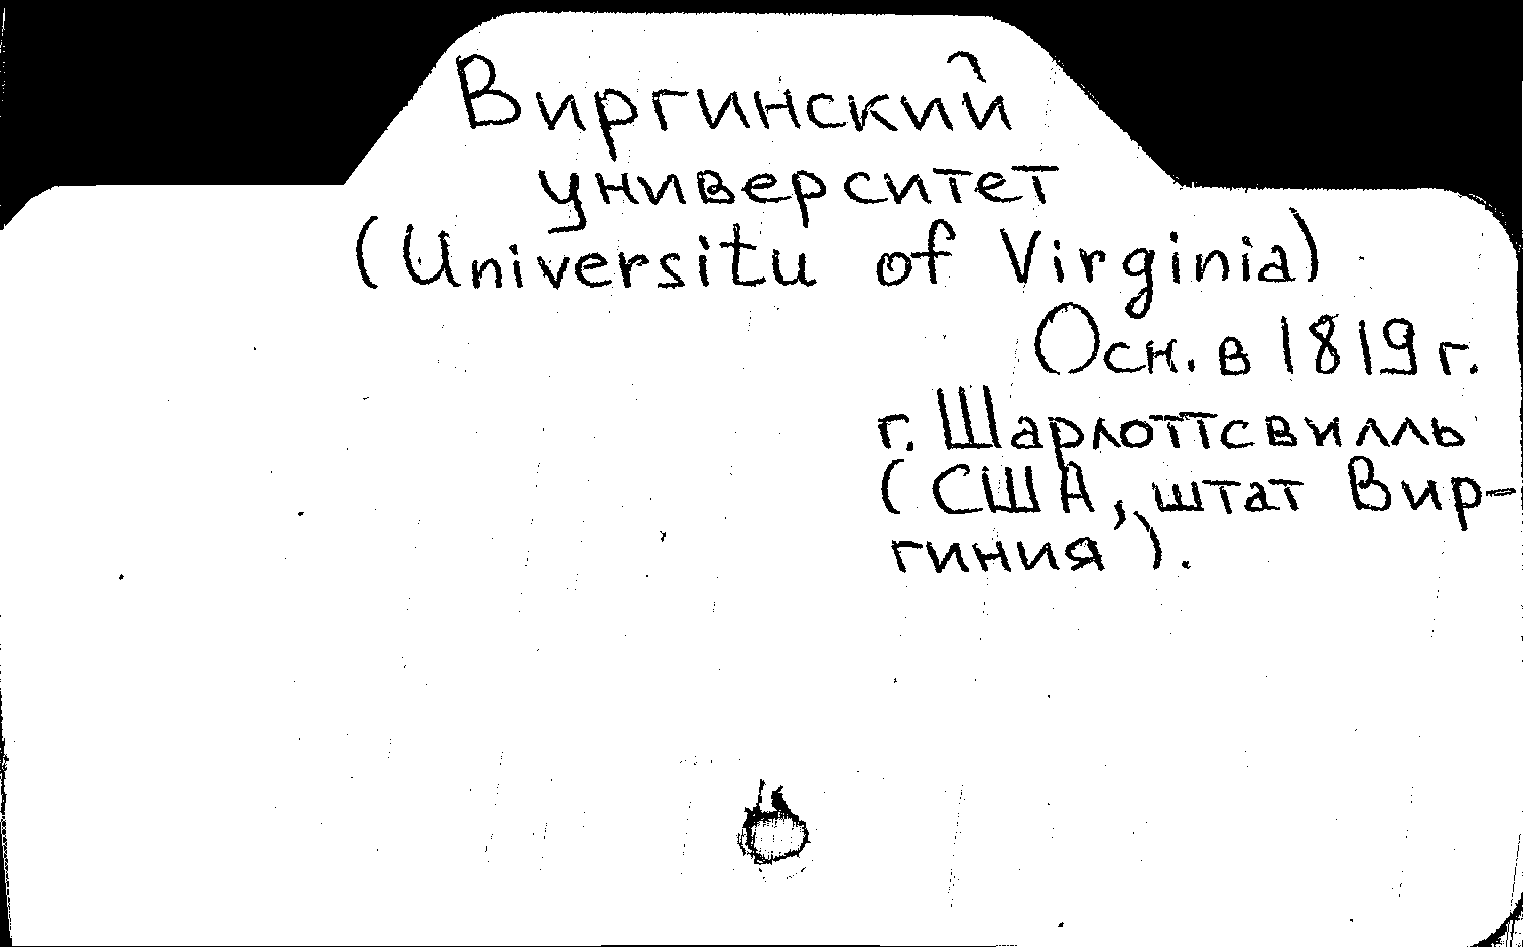 Виргинский
университет
(Universitu of Virginia)
Осн. в 1819 г.
г. Шарлоттсвилль
(США, штат Вир-
гиния).